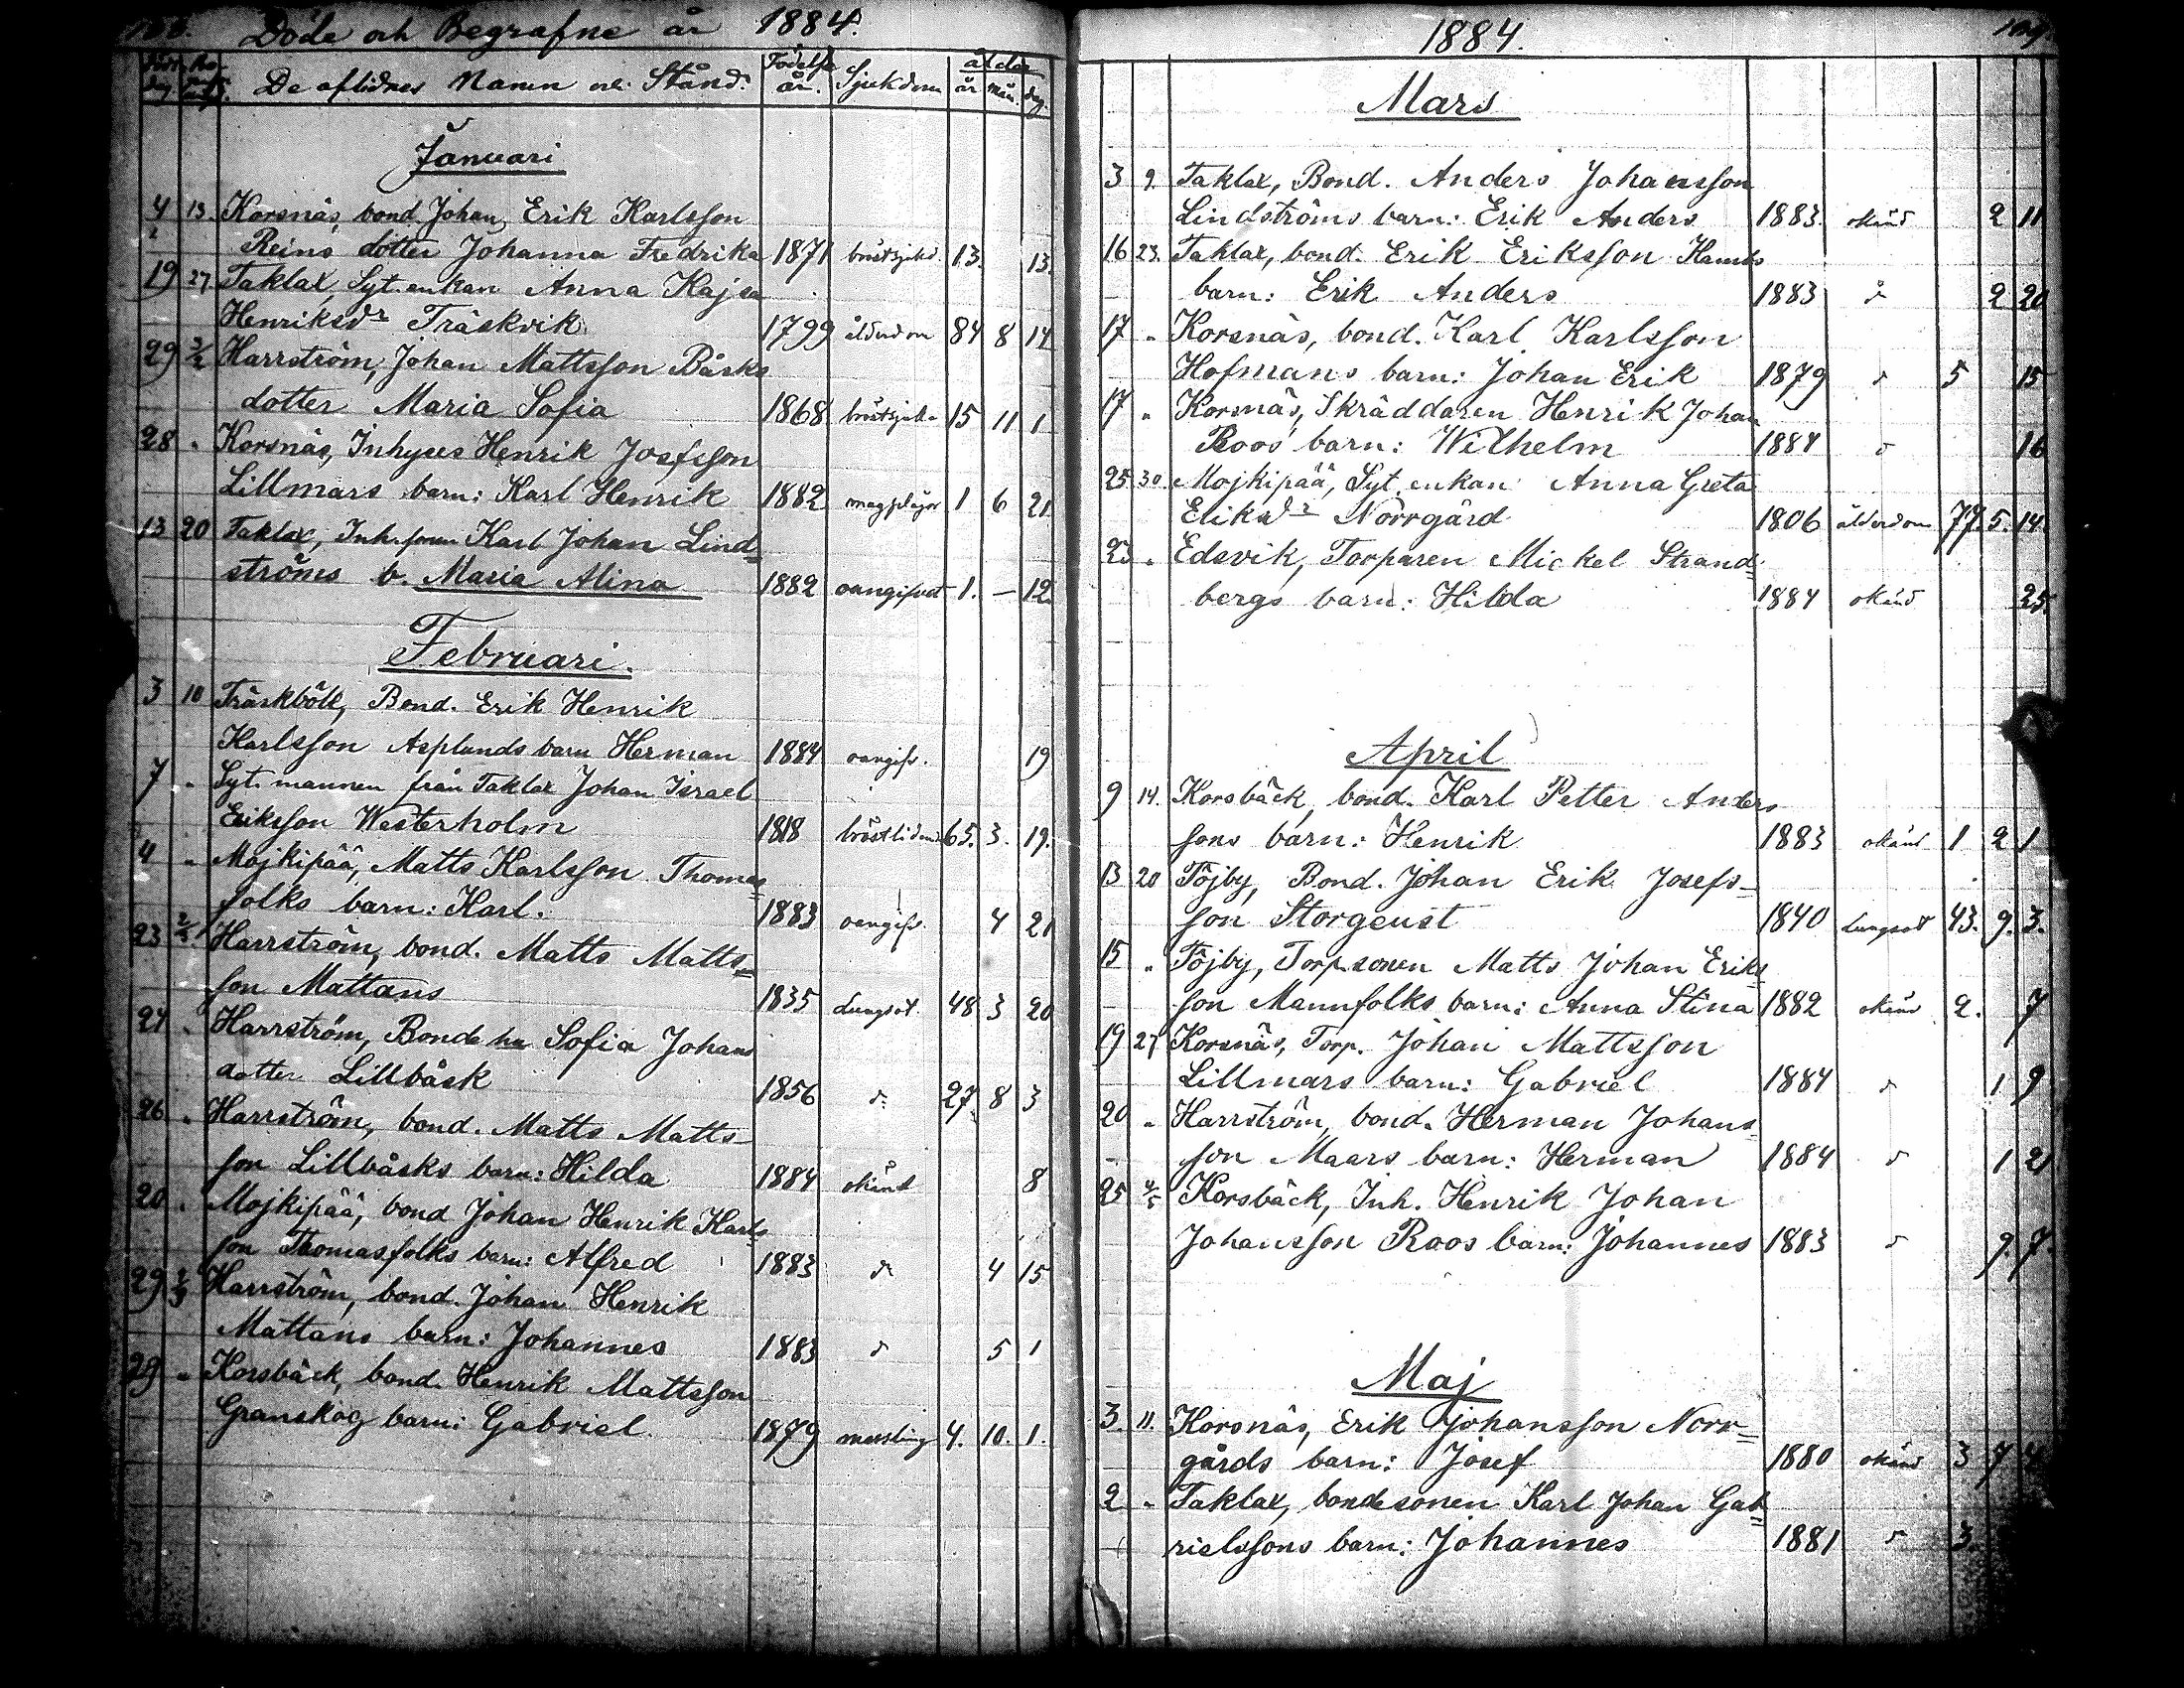 Döde och Begrafne år 1884.
De aflidnes Namn och Stånd. Födelse år. Sjukdom ålder år mån. dag.
Januari
4 13 Korsnäs, bond. Johan Erik Karlsson
Reins dotter Johanna Fredrika 1871 bröstsjukd. 13. 13.
19 27 Taklax, Syt. enkan Anna Kajsa
Henriksdr Träskvik 1799 ålderdom 84 8 14
29 3/2 Harrström, Johan Mattsson Båsks
dotter Maria Sofia 1868 bröstsjukd. 15 11 1
28 " Korsnäs, Inhyses Henrik Josefsson
Lillmars barn: Karl Henrik 1882 magplågor 1 6 21
13 20 Taklax, Inh. sonen Karl Johan Lind=
ströms b. Maria Alina 1882 oangifvet 1. — 12.
Februari.
3 10 Träskböle, Bond. Erik Henrik
Karlsson Asplunds barn Herman 1884 oangif. 19
7 " Syt. mannen från Taklax Johan Israel
Eriksson Westerholm 1818 bröstlidand 65. 3. 19.
4 " Mojkipää, Matts Karlsson Thomas=
folks barn: Karl. 1883 oangif. 4 21
23 2/3 Harrström, bond. Matts Matts=
son Mattans 1835 Lungsot. 48 3 20
24 " Harrström, Bonde hu Sofia Johans
dotter Lillbåsk 1856 d:o 27. 8 3
26 " Harrström, bond. Matts Matts-
son Lillbåsks barn: Hilda 1884 okänd 8
20 " Mojkipää, bond Johan Henrik Karls
son Thomasfolks barn: Alfred 1883 d:o 4 15
29 2/3 Harrström, bond. Johan Henrik
Mattans barn: Johannes 1883 d:o 5 1
29 " Korsbäck, bond. Henrik Mattsson
Granskog barn: Gabriel 1879 messling 4. 10. 1.
1884.
Mars
3 9. Taklax, Bond. Anders Johansson
Lindströms barn: Erik Anders 1883. okänd 2 11
16 23. Taklax, bond. Erik Eriksson
barn: Erik Anders 1883 d:o 2 20
17 " Korsnäs, bond. Karl Karlsson
Hofmans barn: Johan Erik 1879 d:o 5 15
17 " Korsnäs, Skräddaren Henrik Johan
Roos barn: Wilhelm 1884 d:o 16
25 30. Mojkipää, Syt. enkan Anna Greta
Eriksdr Norrgård 1806 ålderdom 77. 5. 14.
23 " Edsvik, Torparen Mickel Strand=
bergs barn: Hilda 1884 okänd 25
April
9 14. Korsbäck, bond. Karl Petter Anders
sons barn: Henrik 1883 okänd 1 2 1
13 20 Töjby, Bond. Johan Erik Josefs-
son Storgeust 1840 Lungsot 43. 9. 3.
15 " Töjby, Torp. sonen Matts Johan Eriks
son Mannfolks barn: Anna Stina 1882 okänd 2. 7
19 27 Korsnäs, Torp. Johan Mattsson
Lillmars barn: Gabriel 1884 d:o 1 9
20 " Harrström, bond. Herman Johans=
son Maars barn: Herman 1884 d:o 1 2
25 4/5 Korsbäck, Inh. Henrik Johan
Johansson Roos barn: Johannes 1883 d:o 9. 7.
Maj
3 11. Korsnäs, Erik Johansson Norr=
gårds barn: Josef 1880 okänd 3 7 4
2 " Taklax, bondesonen Karl Johan Gab=
rielssons barn: Johannes 1881 d:o 3.